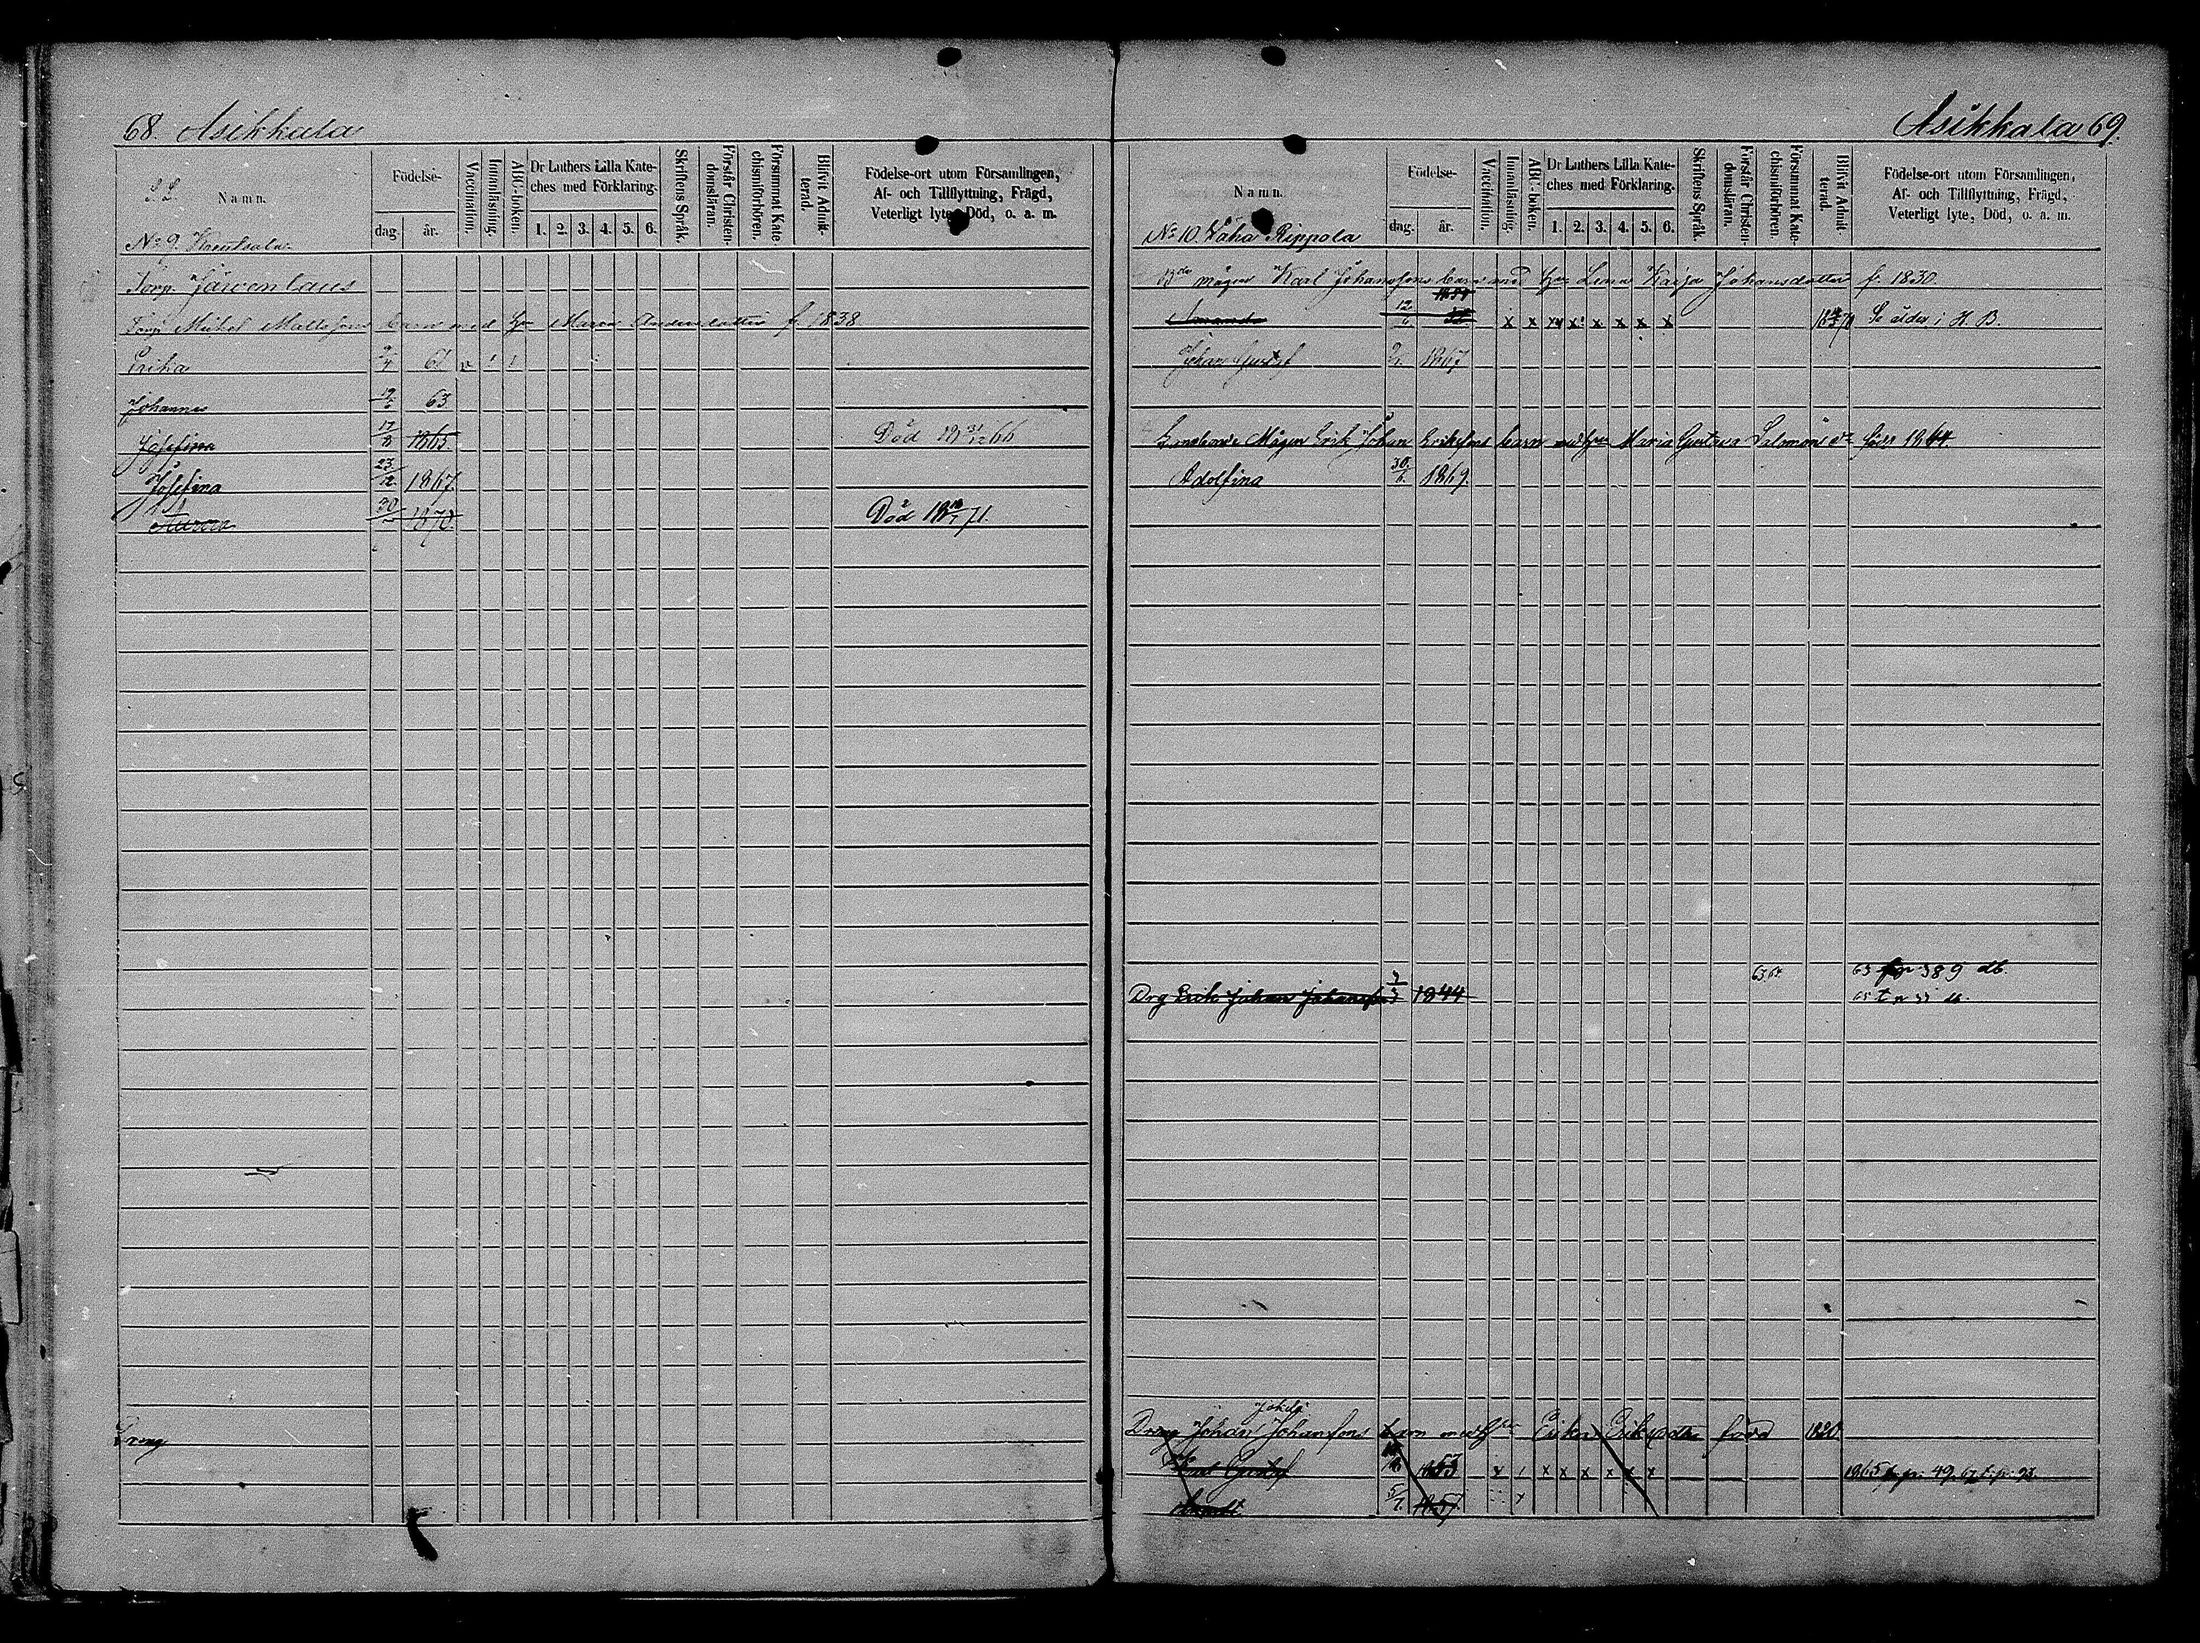 68. Asikkala
S. L.
Namn.
Födelse-
dag.
år.
Vaccination.
Innanläsning.
ABC-boken.
Dr Luthers Lilla Kate-
ches med Förklaring.
1. 2. 3. 4. 5. 6.
Skriftens Språk.
Förstår Christen-
domsläran.
Försummat Kate
chismiförhören.
Blifvit Admit-
terad.
Födelse-ort utom Församlingen,
Af- och Tillflyttning, Frägd,
Veterligt lyte, Död, o. a. m.
No 9.
Torp. Järventaus
Torp Mickel Mattssons barn med Hu Maria Andersdotter f. 1838
Erika 9/4 61 v 1 1
Johannes 63
Josefina 17/8 1865. Död 18 31/12 66
Josefina 23/12 1867.
30 1870. Död 18 /1 71.
Dreng
Asikkala 69.
Namn.
Födelse-
dag.
år.
Vaccination.
Innanläsning.
ABC-boken.
Dr Luthers Lilla Kate-
ches med Förklaring.
1. 2. 3. 4. 5. 6.
Skriftens Språk.
Förstår Christen-
domsläran.
Försummat Kate-
chismiförhören.
Blifvit Admit-
terad.
Födelse-ort utom Församlingen,
Af- och Tillflyttning, Frägd,
Veterligt lyte, Död, o. a. m.
No 10. Wähä Rippola
Bde mågen Karl Johanssons barn med Hu Lena Kaisa Johansdotter f. 1830.
Amanda 12/6 x x x x x x x x Se äldre i H. B.
Johan Gustaf 1867
Mågen Erik Johan Erikssons barn med Hu Maria Gustava Salomons dr född 1844.
Adolfina 30/6 1869.
63 64 63 fr p 389 db.
Drg Erik Johan Johansson 1844 65 t p 33 db.
Johds
Dreng Johan Johanssons barn med Hu Erika Eriksdr född 1820
Karl Gustaf 1853 v 1 x x x x x x 1865 fr. p. 49. 67 t. p. 93.
5/7. 1857.